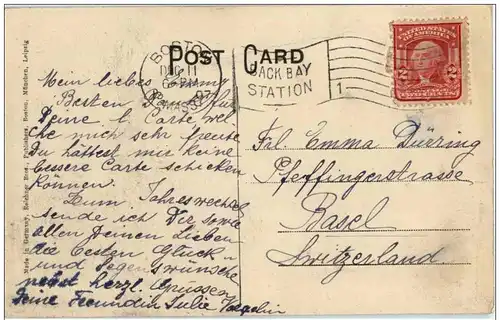 POST CARD
BOSTON
DEC 11
MASS.
07
BACK BAY
STATION
1
UNITED STATES
OF AMERICA
2 2
Made in Germany, Reichner Bros. Publishers, Boston, München, Leipzig
Mein liebes Emma
Besten Dank für
Deine l. Carte wel
che mich sehr freute
Du hättest mir keine
bessere Carte schicken
können.
Zum Jahreswechsel
sende ich Dir sowie
allen Deinen Lieben
die besten Glück
und Segenswünsche
nebst herzl. Grüssen
Deine Freundin Julie
Frl. Emma Dürring
Pfeffingerstrasse
Basel
Switzerland